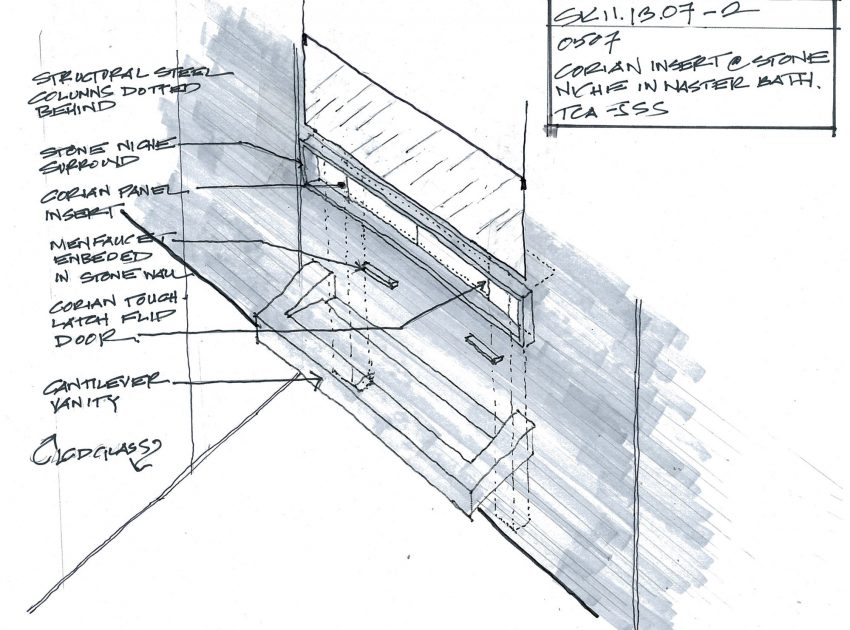 SK11.13.07-2
0507
CORIAN INSERT @ STONE
NICHE IN MASTER BATH.
TCA - JSS
STRUCTURAL STEEL
COLUMNS DOTTED
BEHIND
STONE NICHE
SURROUND
CORIAN PANEL
INSERT
MEN FAUCET
EMBEDED
IN STONE WALL
CORIAN TOUCH
LATCH FLIP
DOOR.
CANTILEVER
VANITY
LCD GLASS?